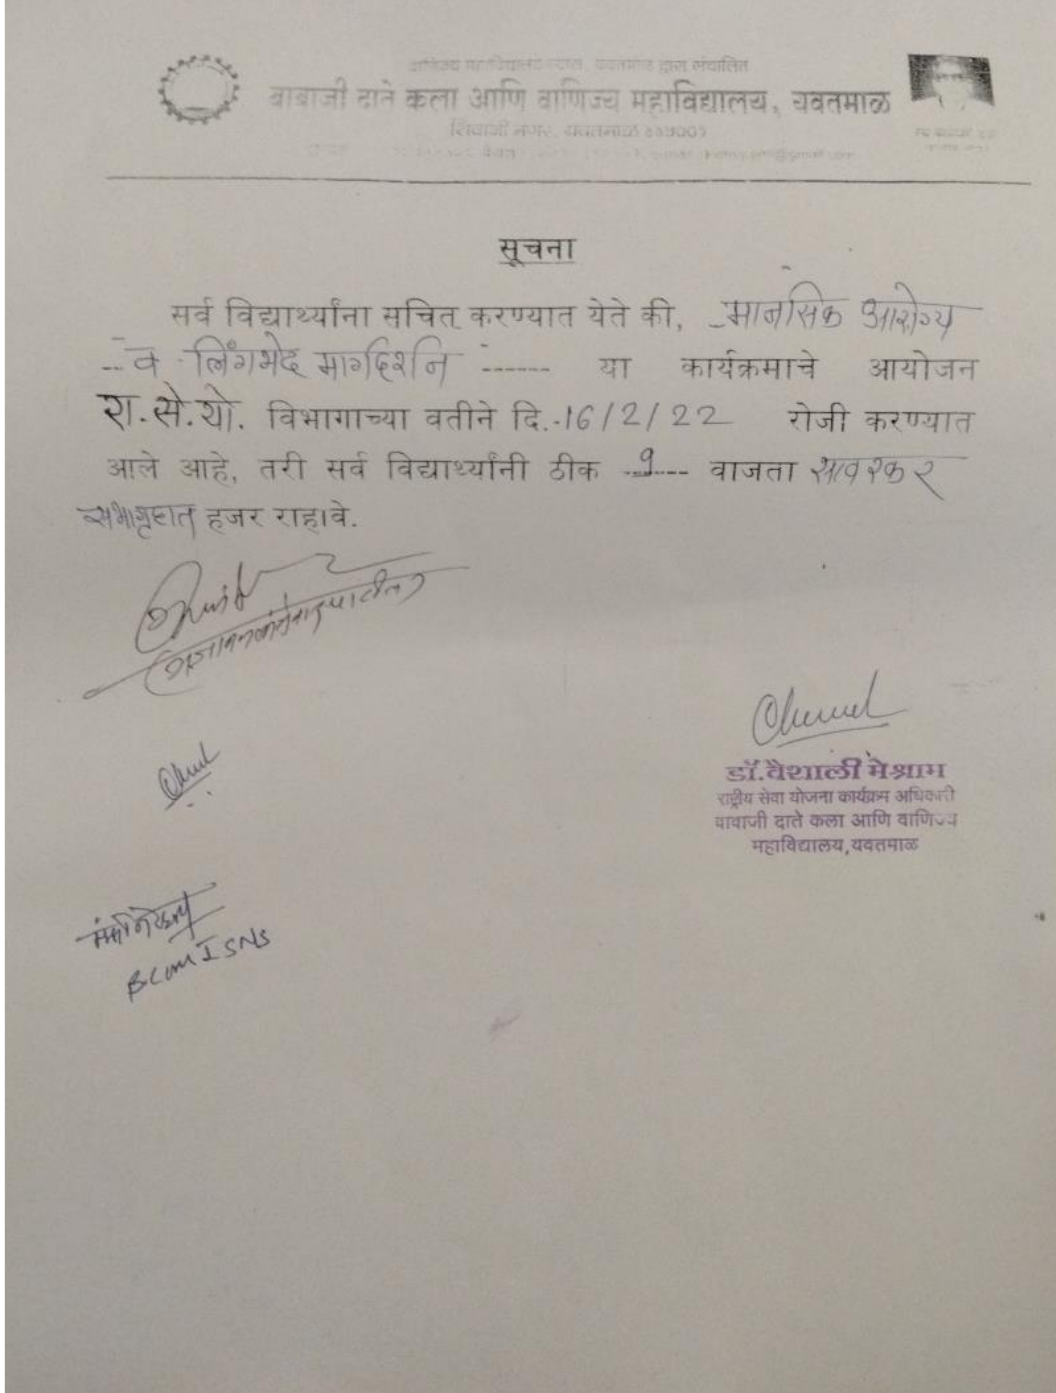 वाणिज्य महाविद्यालय यवतमाळ द्वारा संचालित
बाबाजी दाते कला आणि वाणिज्य महाविद्यालय, यवतमाळ
शिवाजी नगर, यवतमाळ ४४५००१
सूचना
सर्व विद्यार्थ्यांना सचित करण्यात येते की, मानसिक आरोग्य
व लिंगभेद मार्गदर्शन ------ या कार्यक्रमाचे आयोजन
रा.से.यो. विभागाच्या वतीने दि.-16/2/22 रोजी करण्यात
आले आहे, तरी सर्व विद्यार्थ्यांनी ठीक --9--- वाजता सावरकर
सभागृहात हजर राहावे.
डॉ.वैशाली मेश्राम
राष्ट्रीय सेवा योजना कार्यक्रम अधिकारी
बाबाजी दाते कला आणि वाणिज्य
महाविद्यालय,यवतमाळ
BCom I SNS